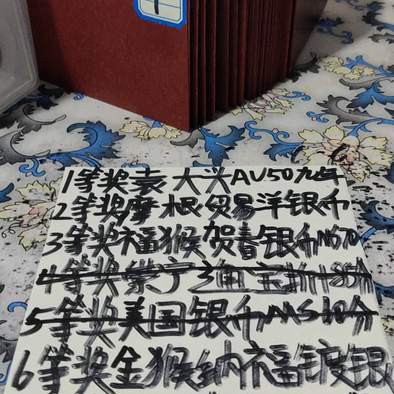 1等奖袁大头AU50九年
2等奖摩根贸易洋银币
3等奖福猴贺春银币MS70
4等奖崇宁通宝折十85分
5等奖美国银币MS69分
6等奖金猴纳福镀银